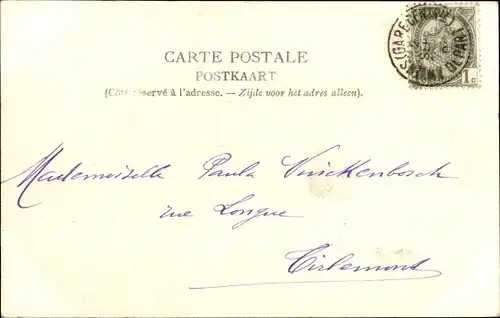 CARTE POSTALE
POSTKAART
(Côté réservé à l'adresse. — Zijde voor het adres alleen).
(GARE CENTRALE)
DÉPART
1 c
Mademoiselle Paula Vinckenbosch
rue Longue
Tirlemont